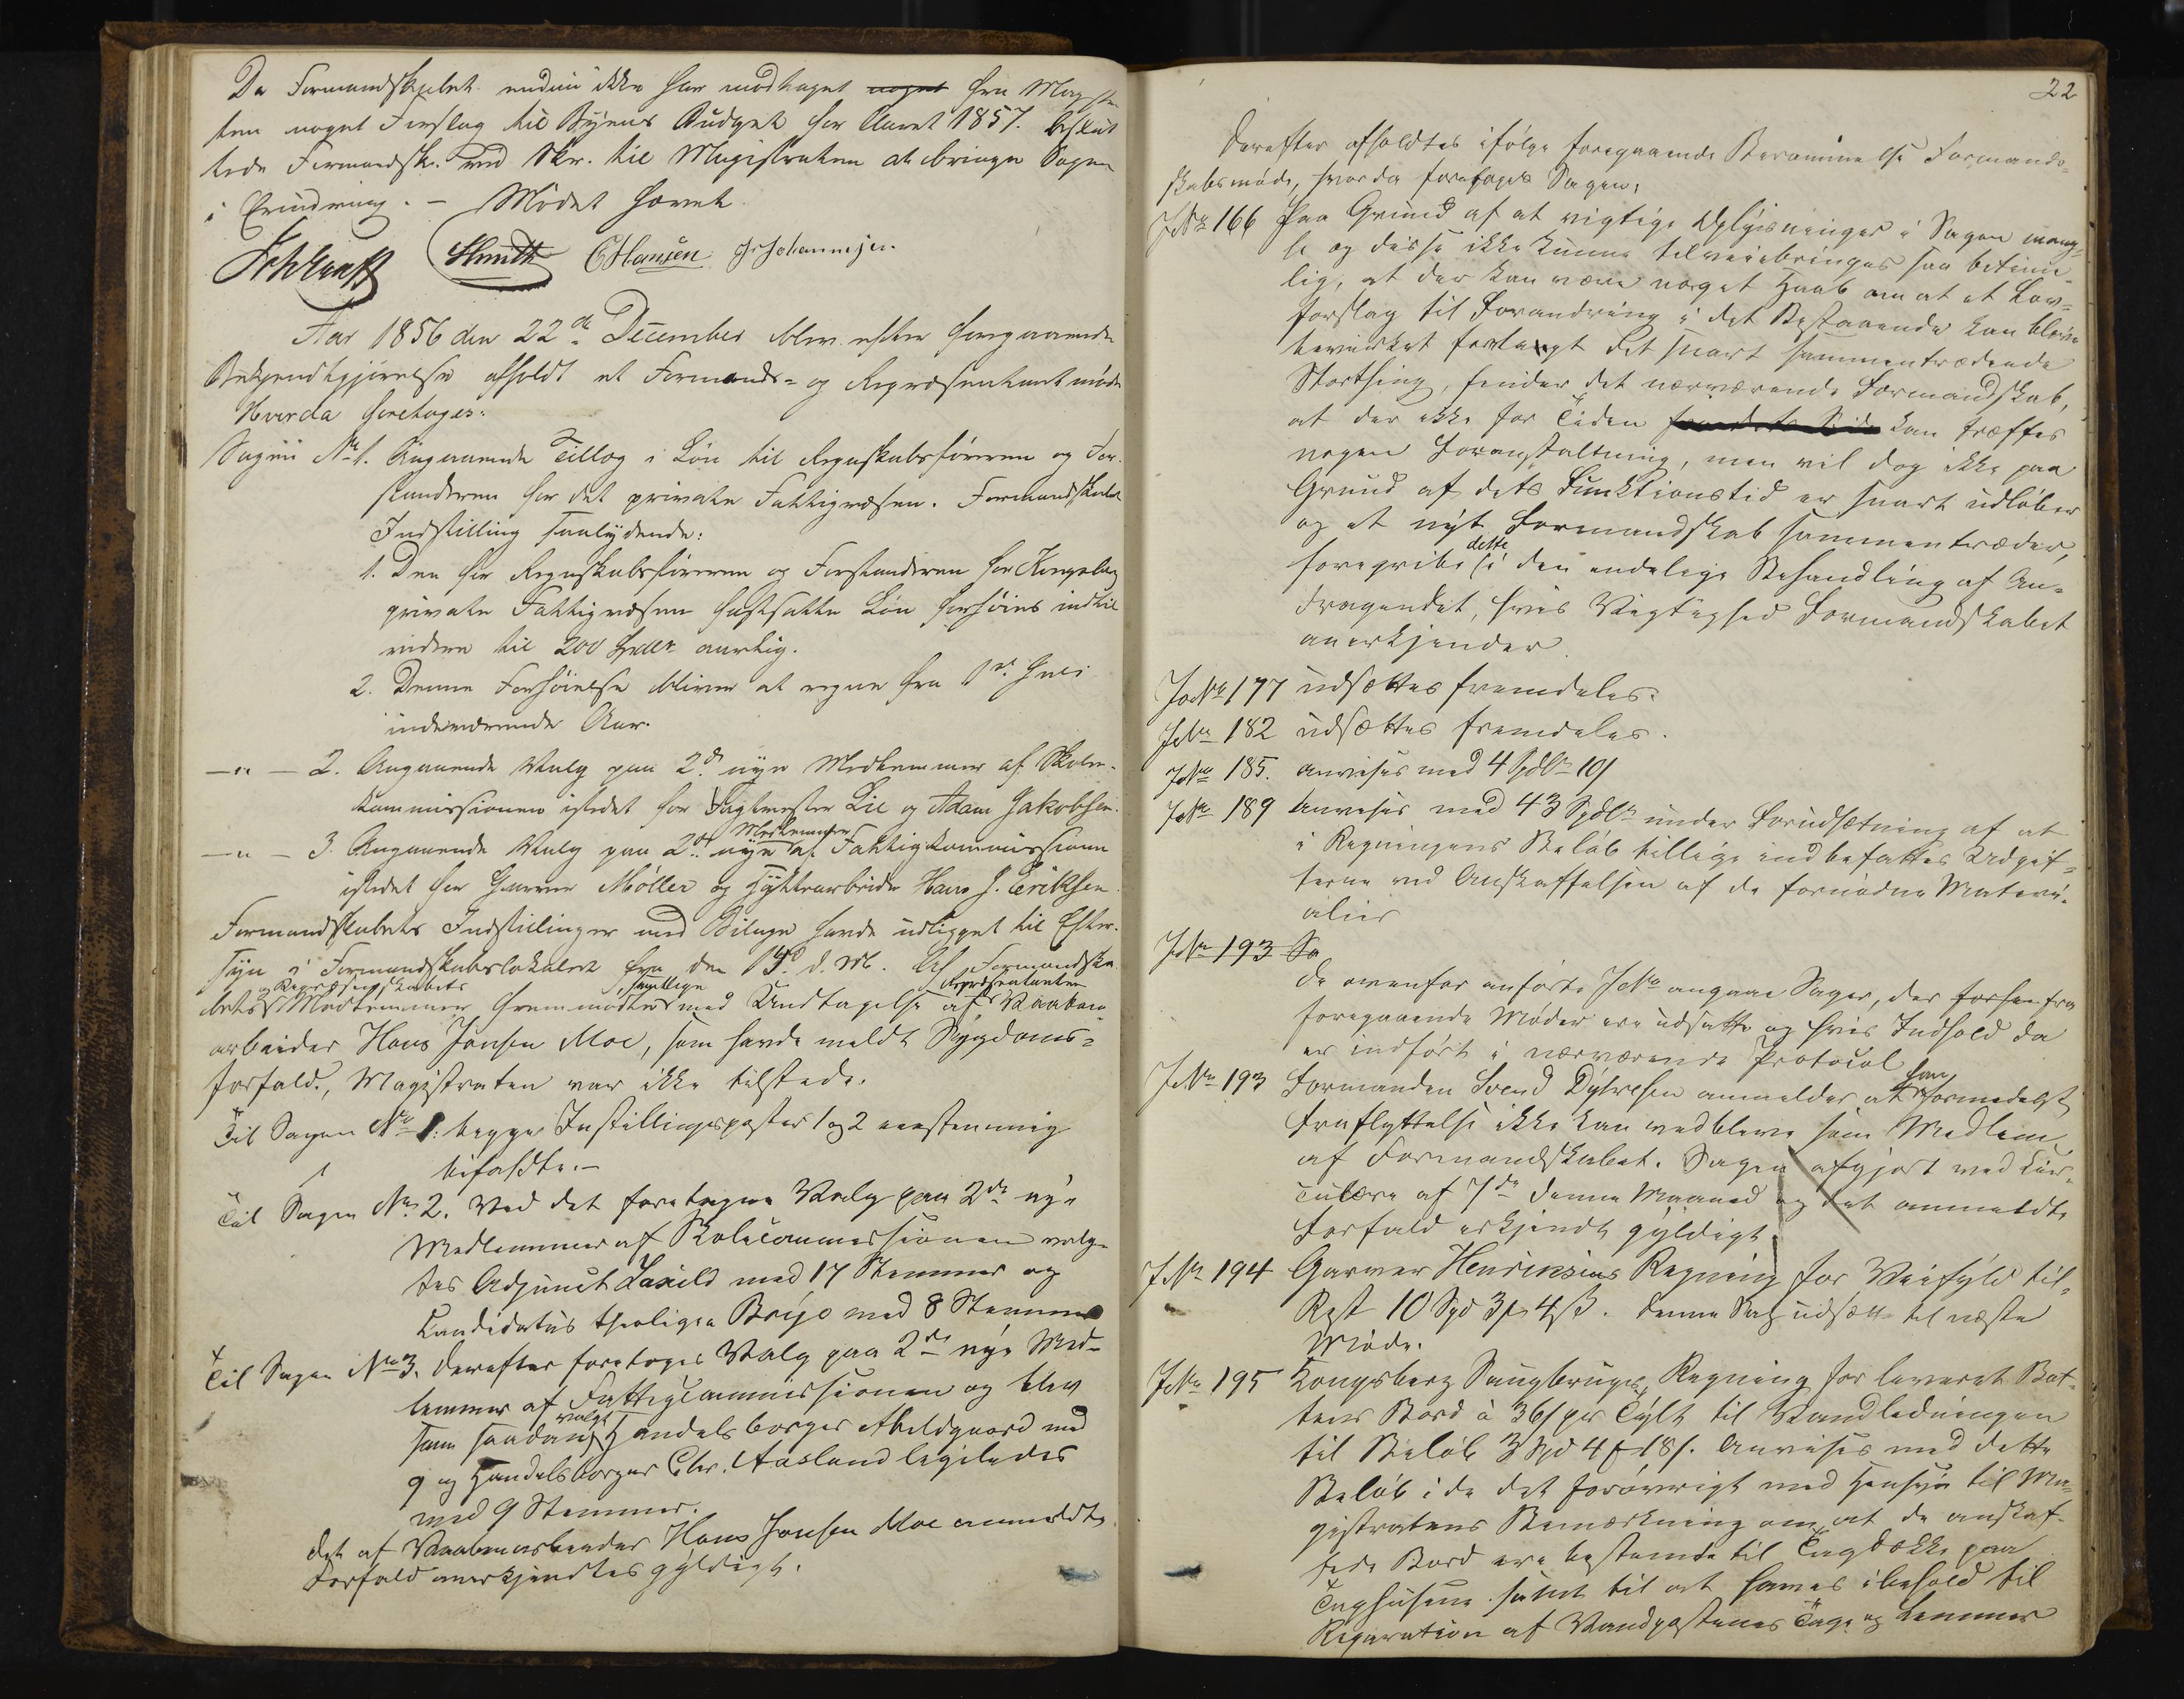 Da Formandskabet endnu ikke har modtaget noget fra Magistra
ten noget Forslag til Byens Budget for Aaret 1857. beslut
tede Formandsk. ved Skr. til Magistraten at bringe Sagen
i Erindring. – Mödet hævet.
Smith CHansen J. Johannesen.
Aar 1856 den 22de December blev efter foregaaende
Bekjendtgjörelse afholdt et Formands- og Repræsentantmöde
Hvorda foretoges:
Sagen No 1. Angaaende Tillæg i Lön til Regnskabsföreren og For-
standeren for det private Fattigvæsen. Formandskabets
Indstilling saalydende:
1. Den for Regnskabsföreren og Forstanderen for Kongsberg
private Fattigvæsen fastsatte Lön forhöies indtil
videre til 200 Spdlr aarlig.
2. Denne Forhöielse bliver at regne fra 1ste Juli
indeværende Aar.
–"– 2. Angaaende Valg paa 2de nye Medlemmer af Skole-
kommissionen istedet for Vagtmester Lie og Adam Jakobsen.
–"– 3. Angaaende Valg paa 2de nye Medlemmer af Fattigkommissionen
istedet for Garver Møller og Hyttearbeider Hans J. Eriksen.
Formandskabets Indstillinger med Bilage havde udligget til Efter-
syn i Formandskabslokalet fra den 15de d. M. Af Formandska
bets og Repræsentskabets Medlemmer fremmödte samtlige med Undtagelse af Repræsentanten Vaaben-
arbeider Hans Jansen Moe, som havde meldt Sygdoms-
forfald., Magistraten var ikke tilstede.
Til Sagen No 1: begge Instillingsposter 1 og 2 eenstemmig
bifaldte.–
Til Sagen No 2. Ved det foretagne Valg paa 2de nye
Medlemmer af Skolecommissionen valg-
tes Adjunct Laxild med 17 Stemmer og
Candidatus theoligia Brijo med 8 Stemmer
Til Sagen No 3. Derefter foretoges Valg paa 2de nye Med-
lemmer af Fattigcommissionen og blev
som saadan valgt Handelsborger Abeldgaard med
9 og Handelsborger Chr. Aasland ligeledes
med 9 Stemmer.
Det af Vaabenarbeider Hans Jansen Moe anmeldte
Forfald anerkjendtes gyldigt.
22
Derefter afholdtes ifölge foregaaende Berammelse Formands-
skabsmöde, hvorda foretoges Sagen:
J No 166 Paa Grund af at vigtige Oplysninger i Sagen mang-
le og disse ikke kunne tilveiebringes saa betime-
lig, at der kan være noget Haab om at et Lov-
forslag til Forandring i det Bestaaende kan blive
bevirket forelagt det snart sammentrædende
Storthing, finder det nærværende Formandskab,
at der ikke for Tiden kan træffes
nogen Foranstaltning, men vil dog ikke paa
Grund af dets Funktionstid er snart udlöben
og et nyt Formandskab sammentræder,
foregribe dette i den endelige Behandling af An-
dragendet, hvis Vigtighed Formandskabet
anerkjender.
J No 177 udsættes fremdeles.
J No 182 udsættes fremdeles.
J No 185. anvises med 4 Spdlr 10 s
J No 189 Anvises med 43 Spdlr under Forudsætning af at
i Regningens Belöb tillige indbefattes Udgif-
terne ved Anskaffelsen af de fornödne Materi-
alier
J No 193 Sa
De ovenfor anförte J No angaae Sager, der forhen fra
foregaaende Möder ere udsatte og hvis Indhold da
er indfört i nærværende Protocol
J No 193 Formanden Svend Dyhresen anmelder at han formedelst
fraflyttelse ikke kan vedblive som Medlem
af Formandskabet. Sagen afgjort ved Cir-
culære af 7de denne Maaned og det anmeldte
Forfald erkjendt gyldigt.
J No 194 Garver Henrinsens Regning for Veifyld til-
Rest 10 Spd 3 4 ß. Denne Sag udsættes til næste
Möde.
J No 195 Kongsberg Saugbrugs Regning for leveret Bat-
tens Bord à 36 s pr Tylt til Vandledningen
til Belöb 3 Spd 4 18 s. Anvises med dette
Belöb i de det forövrigt med Hensyn til Ma-
gistratens Bemærkning om at de anskaf-
fede Bord ere bestemte til Tagdække paa
Taghusene samt til at haves i behold til
Reparation af Vandposternes Tage og Lemmer